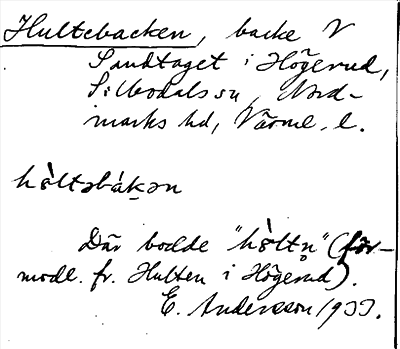 Hultebacken, backe V
Sandtaget i Högerud,
Silbodals sn, Nord-
marks hd, Värml. l.
hòltəbákən
Där bodde "hòltn̥" (för-
modl. fr. Hulten i Högerud).
E. Andersson 1933.